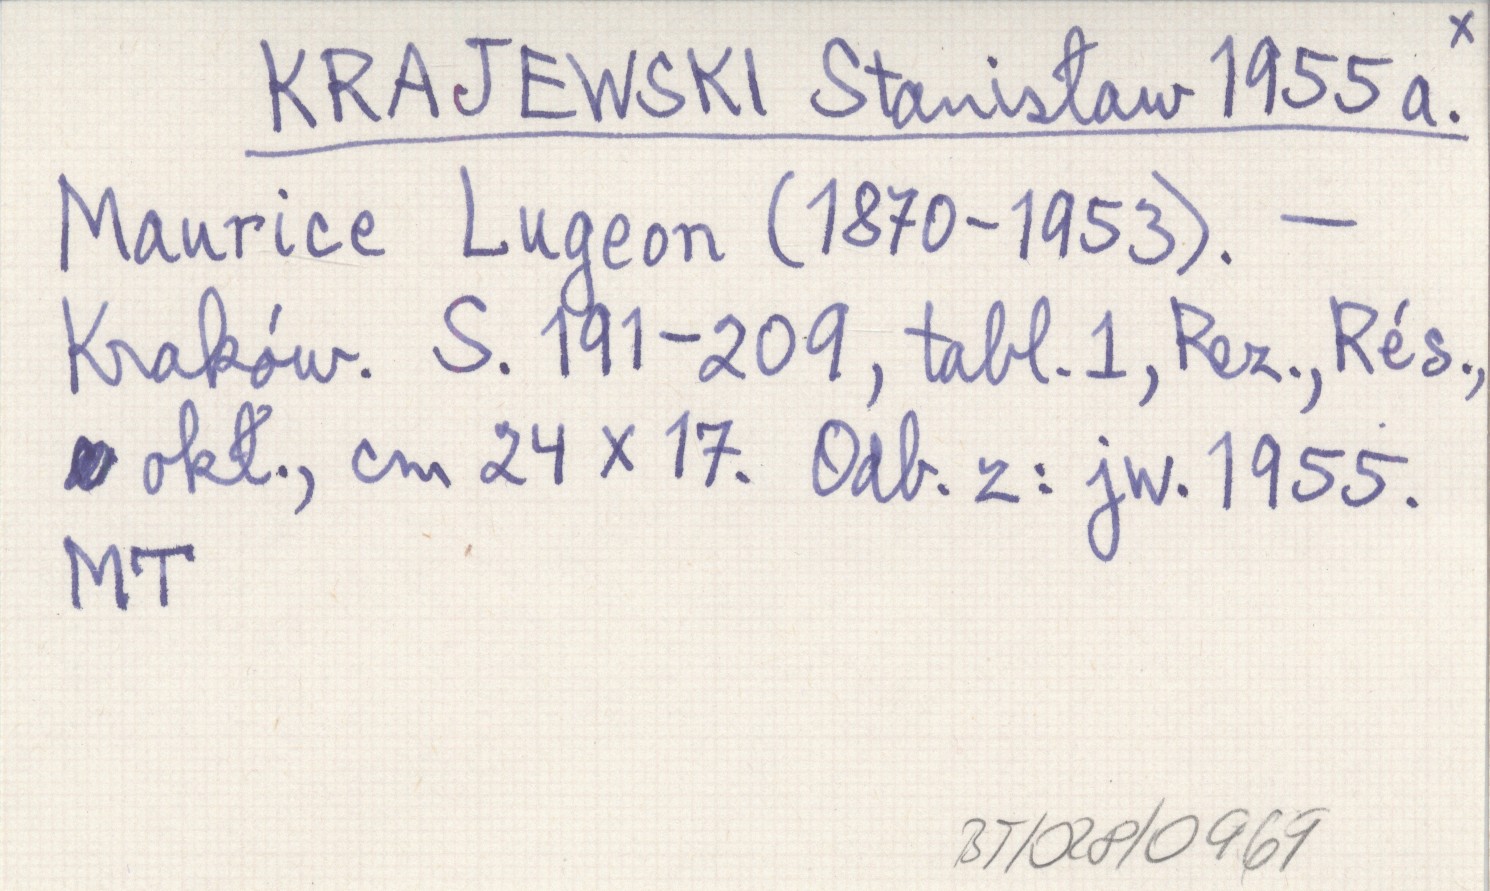 x
KRAJEWSKI Stanisław 1955a.
Maurice Lugeon (1870-1953). —
Kraków. S. 191-209, tabl. 1, Rez., Rés.,
okł., cm 24 x 17. Odb. z: jw. 1955.
MT
BT/028/0969